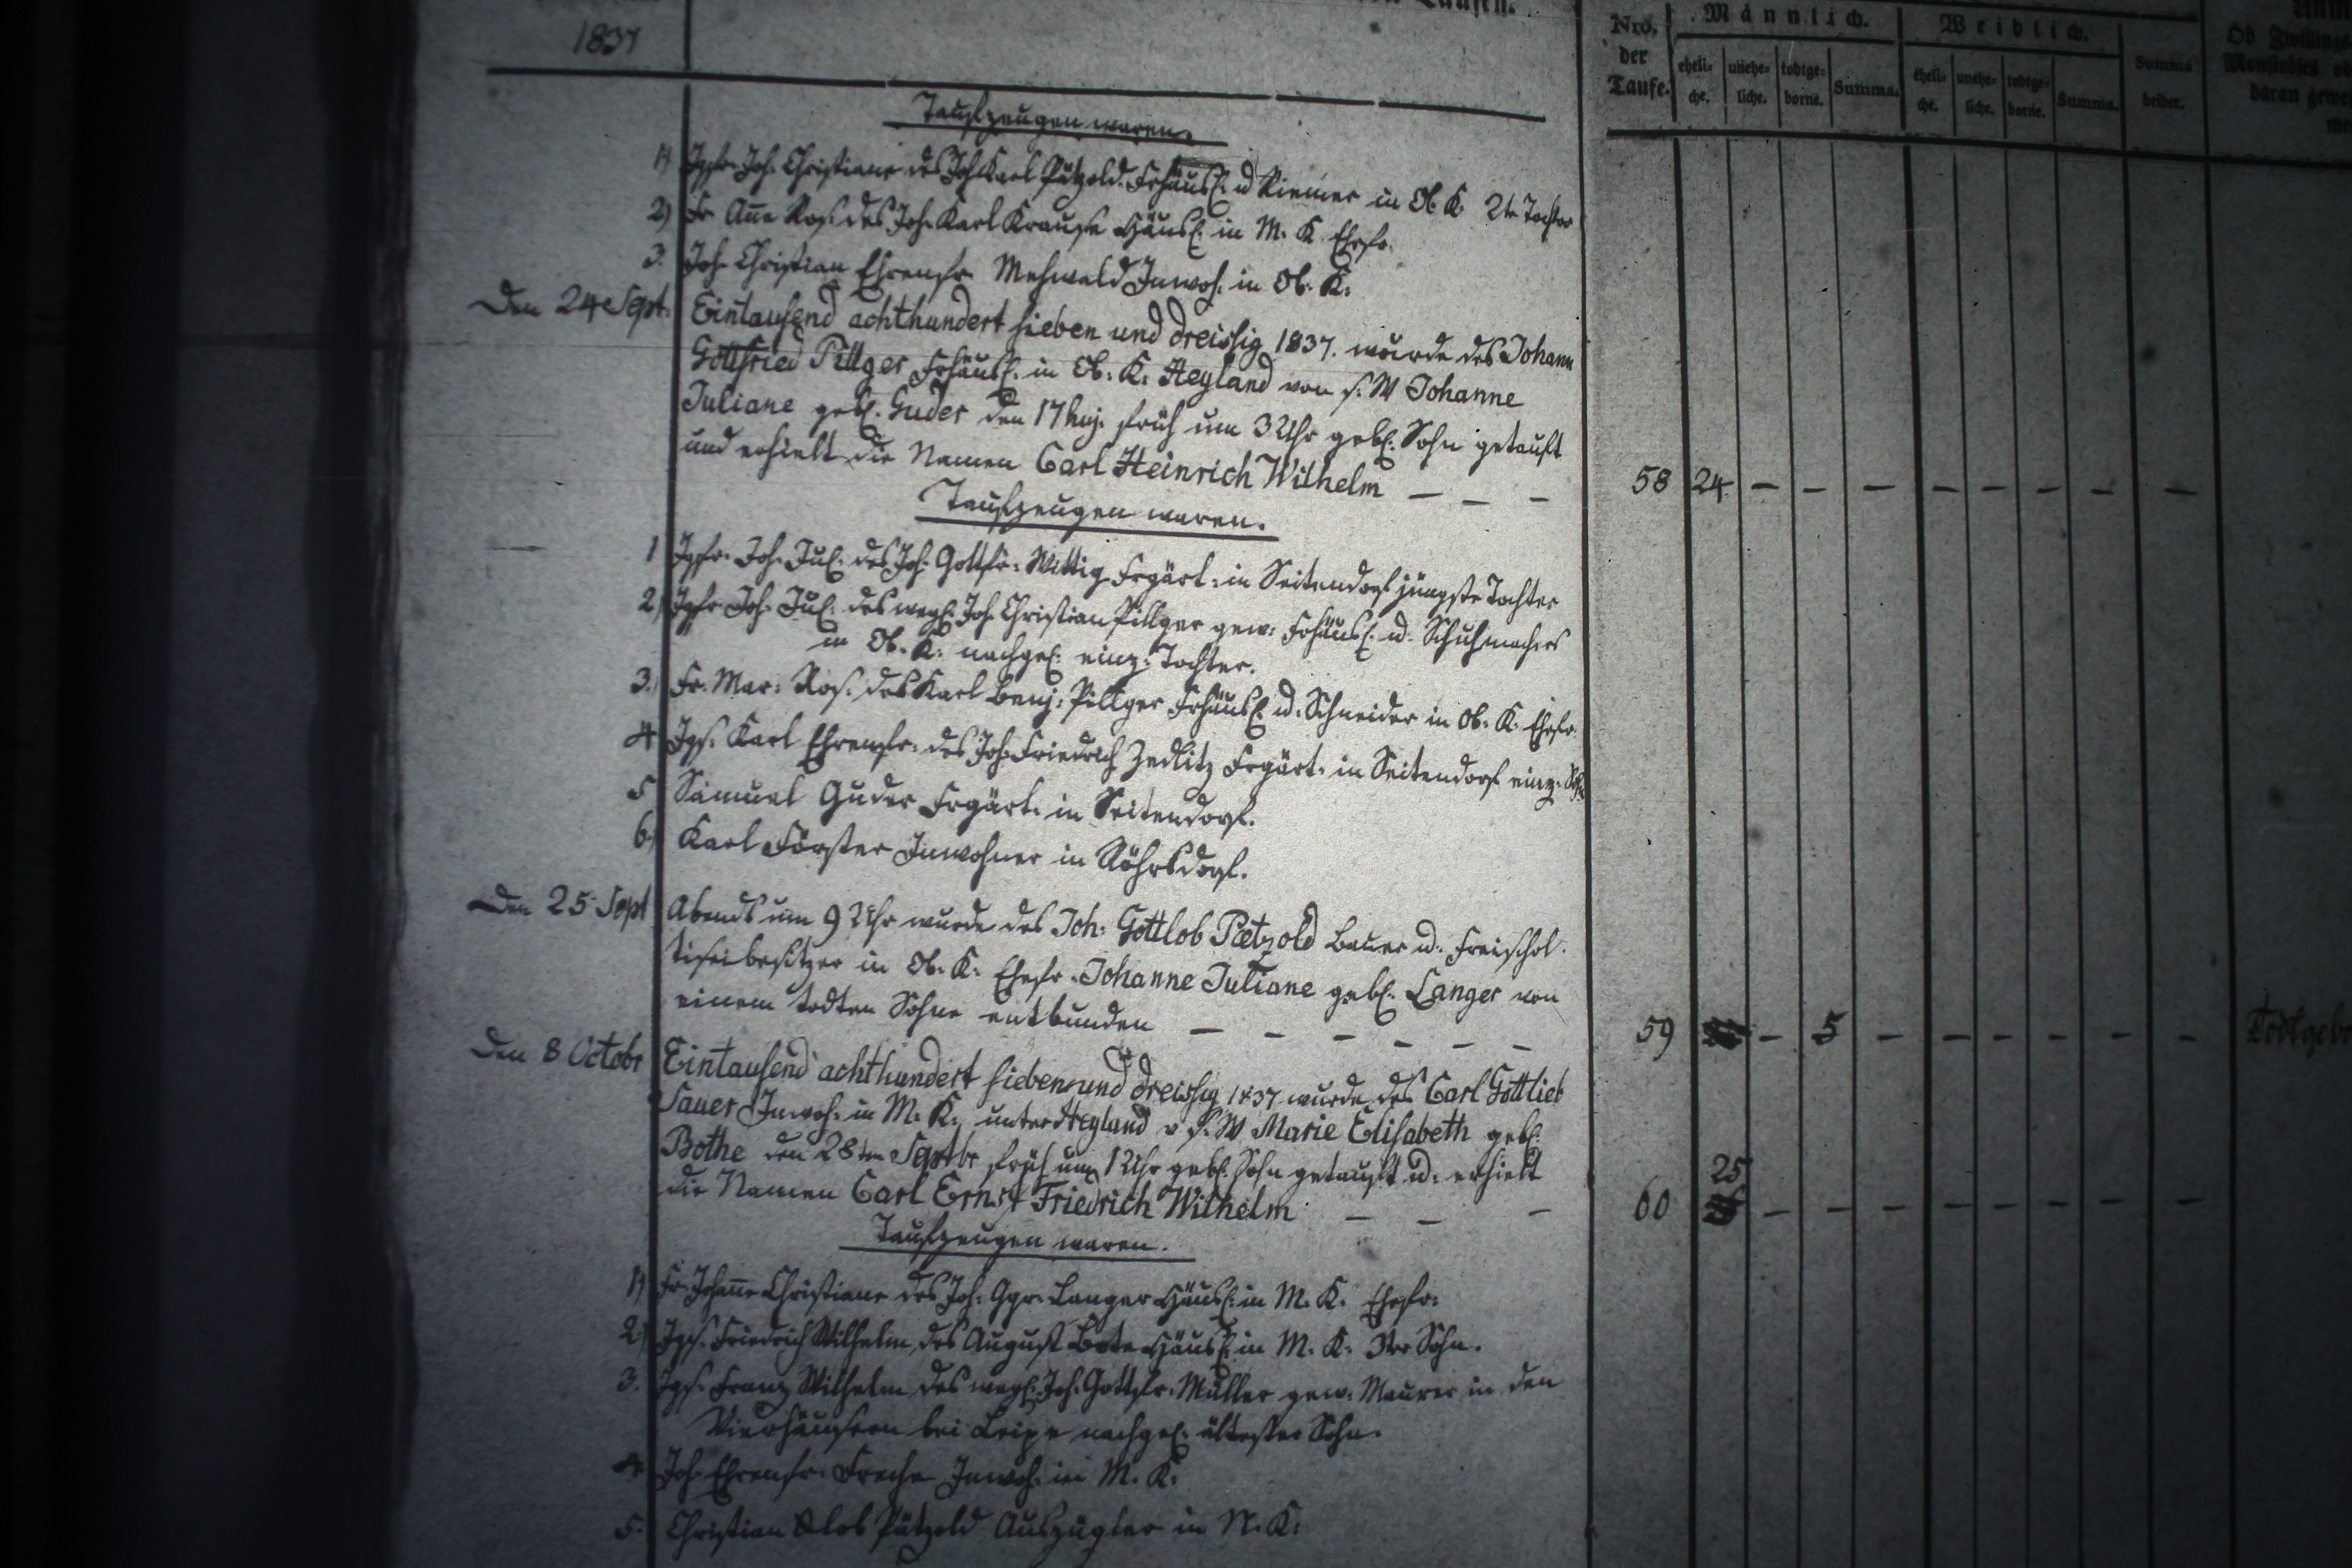 1837
Taufen.
Nro. der Taufe.
Männlich.
eheli- che. unehe- liche. todtge- borne. Summa.
Weiblich.
eheli- che. unehe- liche. todtge- borne. Summa.
Summa beider.
Ob Zwillinge
Monströses
daran gewe
Taufzeugen waren.
1) Jgfr. Joh. Christiane des Joh Karl Pätzold Frhäusl. u Riemer in Ob. K. 2te Tochter
2) Fr Anne Ros. des Joh. Karl Krause Häusl. in M. K Ehefr.
3. Joh. Christian Ehrenfr. Mehwald Inwoh. in Ob. K.
Den 24 Sept. Eintausend achthundert sieben und dreissig 1837. wurde des Johann
Gottfried Pillger Frhäusl. in Ob. K. Heyland von s. W Johanne
Juliane gebl. Guder den 17 huj. früh um 3 Uhr gebl. Sohn getauft
und erhielt die Namen Carl Heinrich Wilhelm — — — 58 24 — — — — — — — —
Taufzeugen waren.
1 Jgfr. Joh. Jul. des Joh. Gottfr. Wittig Frgärt. in Seitendorf jüngste Tochter
2) Jgfr. Joh. Jul. des wegl. Joh. Christian Pillger gew. Frhäusl. u. Schuhmachers
in Ob. K. nachgel. einz. Tochter.
3.) Fr. Mar. Ros. des Karl Benj. Pillger Frhäusl. u. Schneider in Ob. K. Ehefr.
4 Jgs. Karl Ehrenfr. des Joh. Friedrich Zedlitz Frgärt. in Seitendorf einz. Sohn
5 Samuel Guder Frgärt. in Seitendorf.
6) Karl Förster Inwohner in Röhrsdorf.
Den 25 Sept Abends um 9 Uhr wurde des Joh. Gottlob Pætzold Bauer u. Freischol-
tiseibesitzer in Ob. K. Ehefr. Johanne Juliane gebl. Langer von
einem todten Sohne entbunden — — — — — — 59 — 5 — — — — — — Todtgeb
Den 8 Octobr Eintausend achthundert sieben und dreissig 1837 wurde des Carl Gottlieb
Sauer Inwoh. in M. K., unter Heyland v s. W Marie Elisabeth gebl.
Bothe den 28ten Septbr früh um 1 Uhr gebl. Sohn getauft u. erhielt
die Namen Carl Ernst Friedrich Wilhelm — — — 60 25 — — — — — — — —
Taufzeugen waren.
1) Fr. Johanne Christiane des Joh. Ggr. Langer Häusl. in M. K. Ehefr.
2) Jgs. Friedrich Wilhelm des August Bote Häusl. in M. K. 3ter Sohn.
3. Jgs. Franz Wilhelm des wegl. Joh. Gottfr. Müller gew. Maurer in den
Vierhäusern bei Leipe nachgel. ältester Sohn.
4 Joh. Ehrenfr. Freche Inwoh. in M. K.
5. Christian Glob Pätzold Auszügler in N. K.